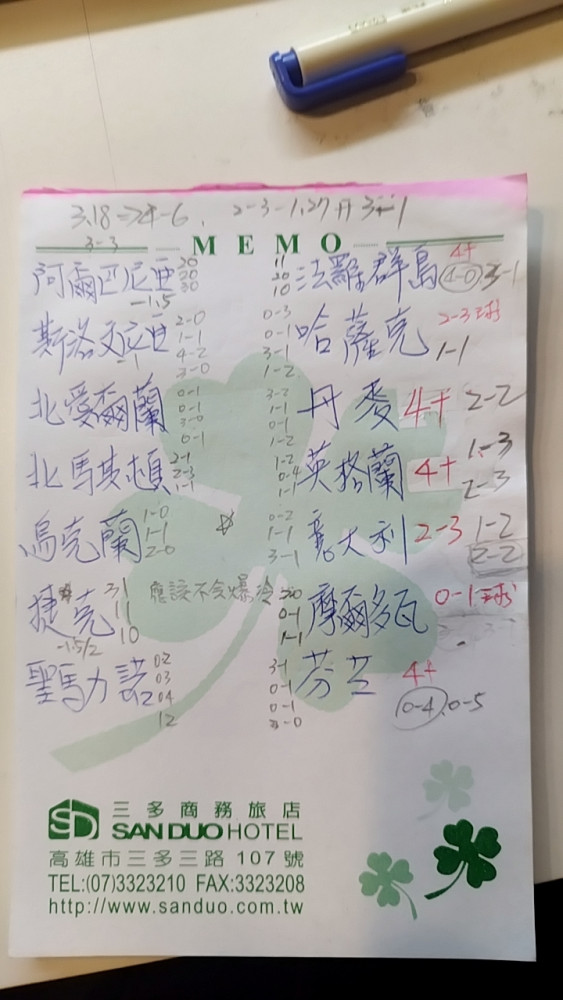 3.18 => 4-6. 2-3-1.27 3-1
3-3
MEMO
阿爾巴尼亞 20 20 30 11 20 10 法羅群島 4+ 4-0 3-1
-1.5
斯洛文尼亞 2-0 1-1 4-2 3-0 0-3 0-1 3-1 1-2 哈薩克 2-3球 1-1
-1
北愛爾蘭 0-1 0-1 3-0 0-1 3-2 1-1 0-1 1-2 丹麥 4+ 2-2
北馬其頓 2-1 2-3 1-1 1-2 0-4 1-1 英格蘭 4+ 1-3 2-3
烏克蘭 1-0 1-1 2-0 ☆ 0-2 1-1 3-1 意大利 2-3 1-2 2-2
捷克 31 11 10 應該不會爆冷 20 0-1 1-1 摩爾多瓦 0-1球
-1.5/2
聖馬力諾 02 03 04 12 3-1 0-1 0-1 芬兰 4+ 0-4 0-5
SD 三多商務旅店
SAN DUO HOTEL
高雄市三多三路 107 號
TEL:(07)3323210 FAX:3323208
http://www.sanduo.com.tw